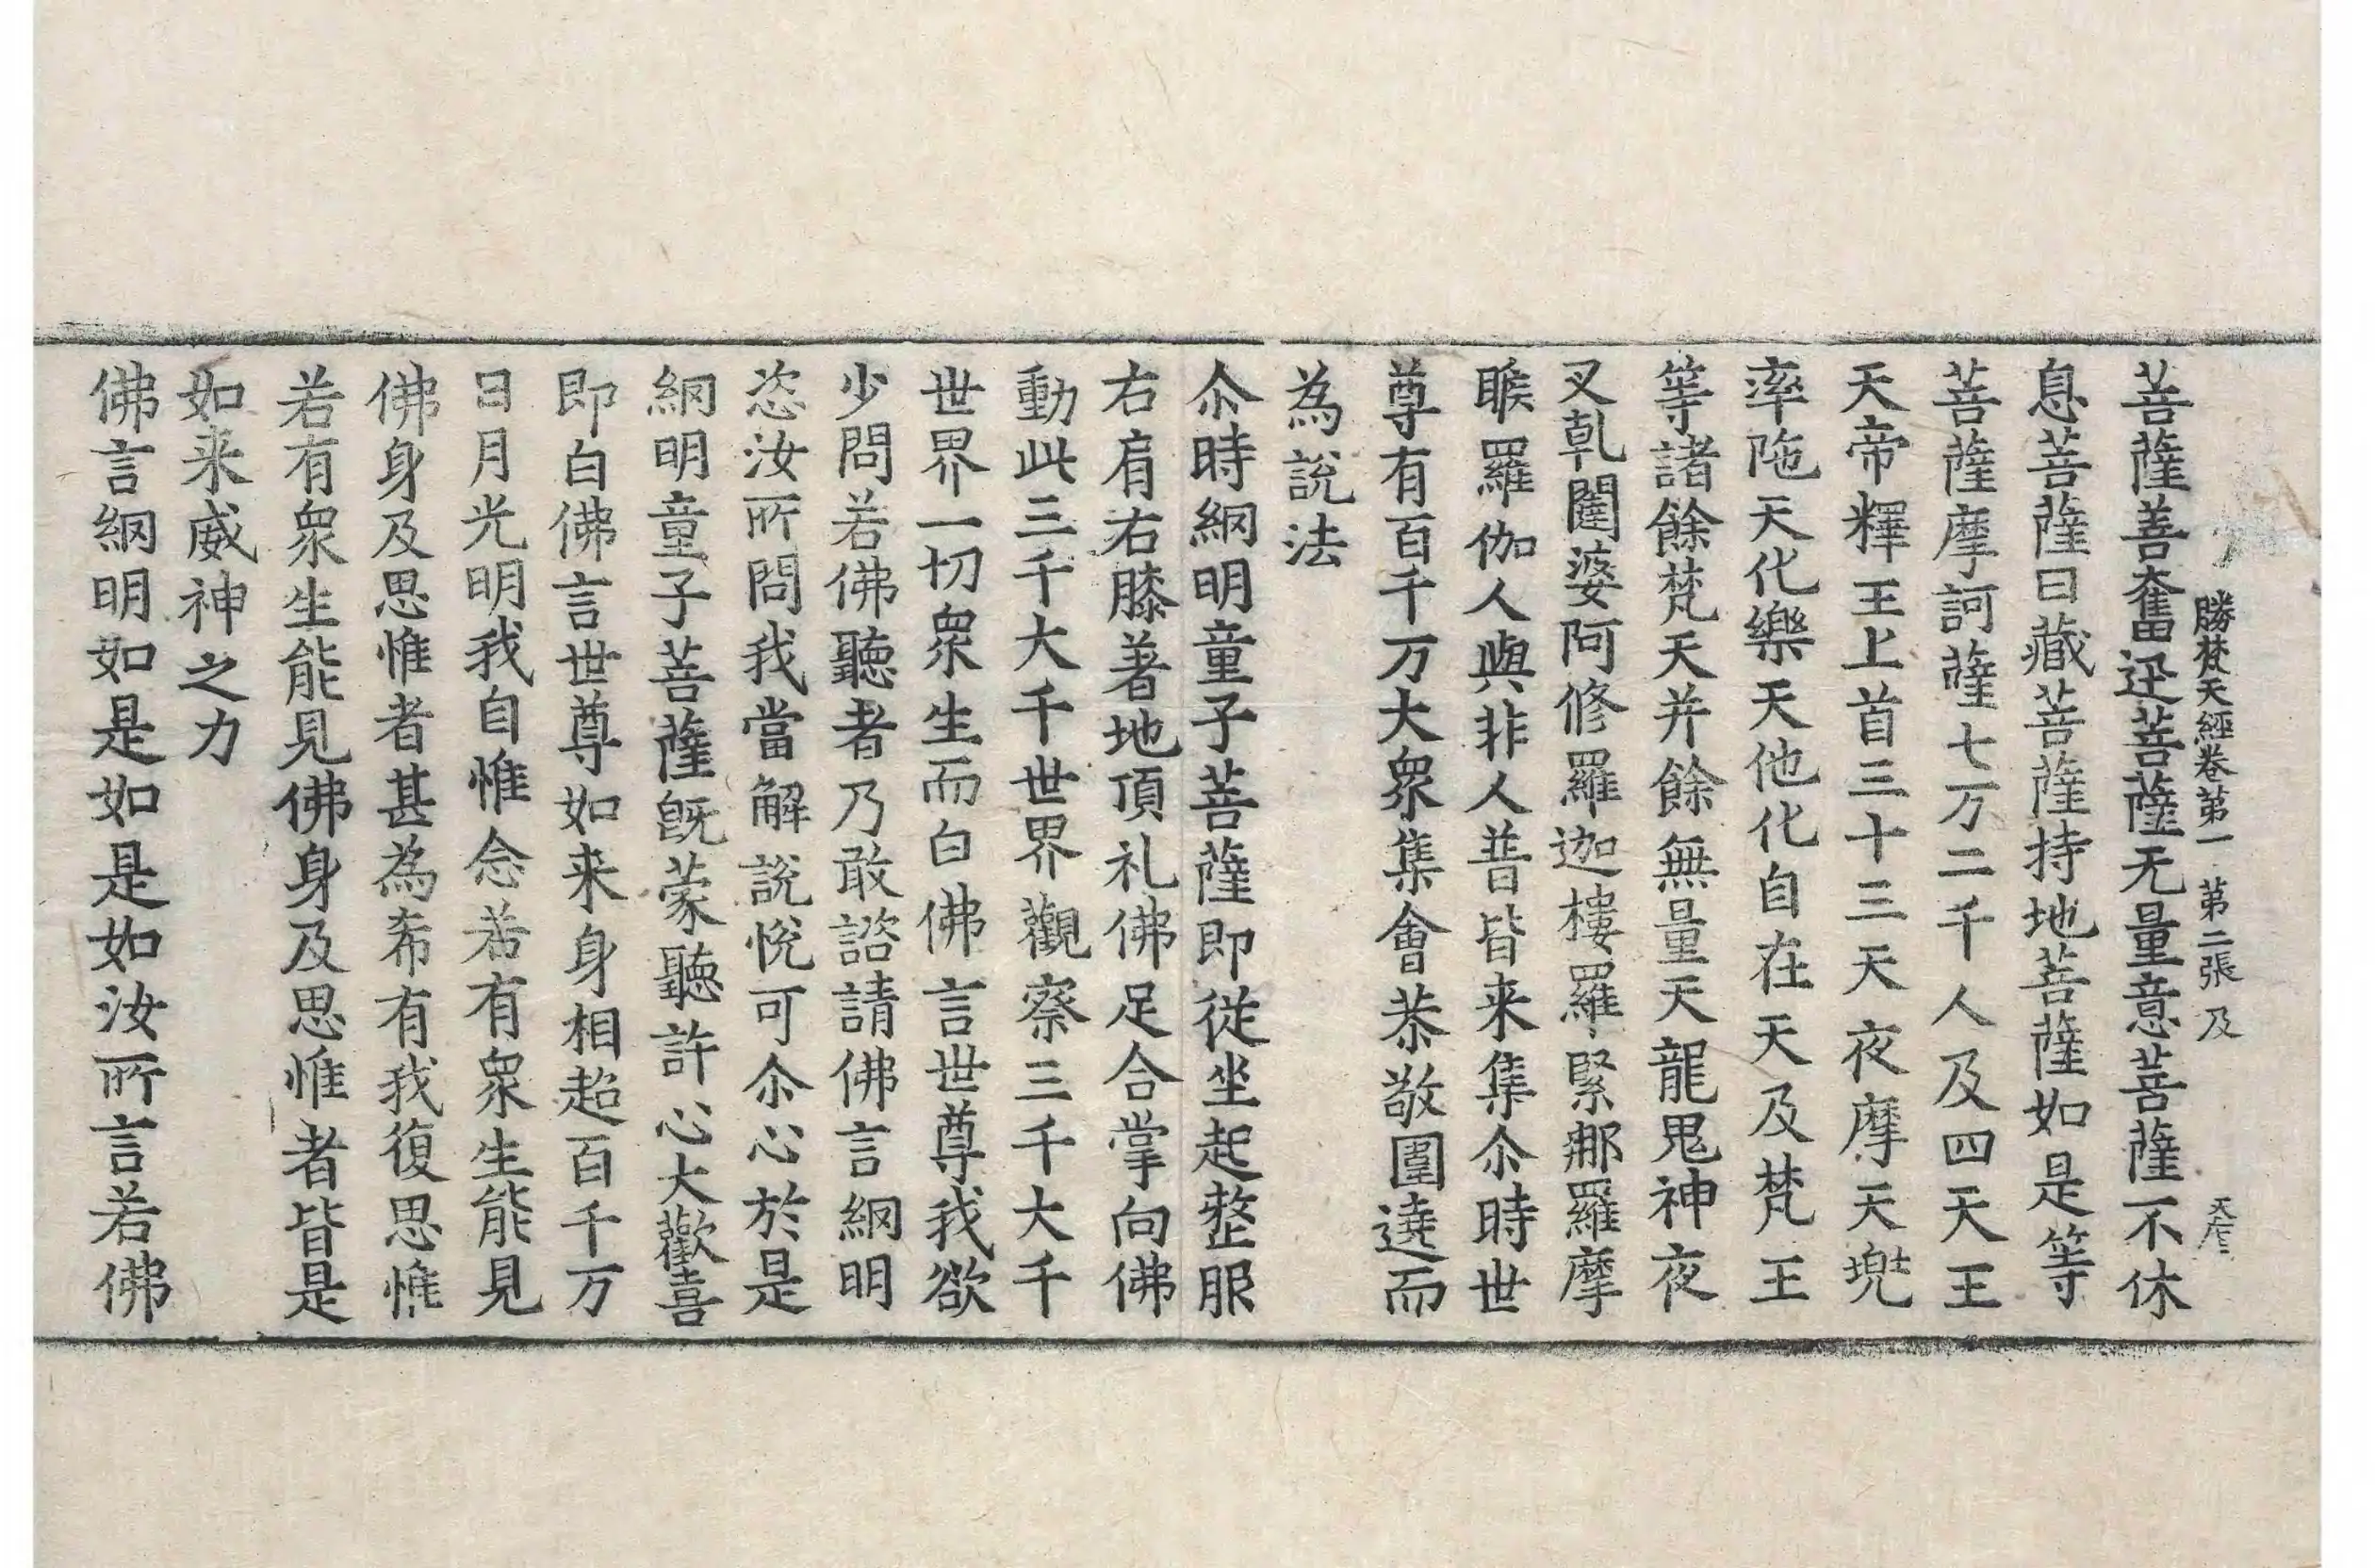 勝梵天經卷苐一 苐二張 及
菩薩善奮迅菩薩无量意菩薩不休
息菩薩日藏菩薩持地菩薩如是等
菩薩摩訶薩七万二千人及四天王
天帝釋王上首三十三天夜摩天兠
率陁天化樂天他化自在天及梵王
等諸餘梵天并餘無量天龍鬼神夜
叉乹闥婆阿修羅迦樓羅緊那羅摩
睺羅伽人與非人普皆来集尒時世
尊有百千万大衆集會恭敬圍遶而
為說法
尒時網明童子菩薩即從坐起整服
右肩右膝著地頂礼佛足合掌向佛
動此三千大千世界觀察三千大千
世界一切衆生而白佛言世尊我欲
少問若佛聽者乃敢諮請佛言網明
恣汝所問我當解說悅可尒心於是
網明童子菩薩旣蒙聽許心大歡喜
即白佛言世尊如来身相超百千万
日月光明我自惟念若有衆生能見
佛身及思惟者甚為希有我復思惟
若有衆生能見佛身及思惟者皆是
如来威神之力
佛言網明如是如是如汝所言若佛